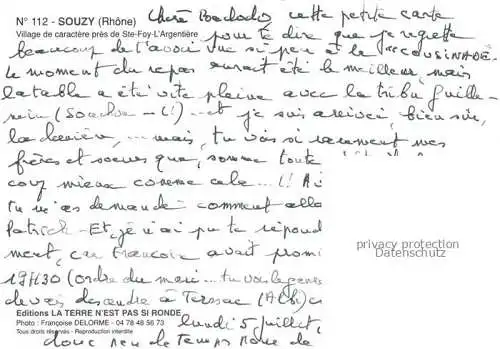 N° 112 - SOUZY (Rhône)
Village de caractère près de Ste-Foy-L'Argentière
Chère cette petite carte
pour te dire que je regrette
beaucoup de t'avoir vue si peu à la "COUSINADE.
le moment du repas aurait été le meilleur, mais
la table a été vite pleine avec la tribu Guille-
et je suis arrivée, bien sûr,
la dernière, ... mais, tu vois si rarement mes
frères et soeurs que, somme toute
coup mieux comme cela ...!!
tu m'as demandé comment
Patrick - Et, je n'ai pu te répond
ment, car François avait promi
privacy protection
Datenschutz
19H30 (ordre du tu vois le genre
devais descendre à Terssac (Albi)
Editions LA TERRE N'EST PAS SI RONDE
Photo : Françoise DELORME - 04 78 48 56 73
Tous droits réservés - Reproduction interdite
lundi 5 juillet,
donc peu de temps pour